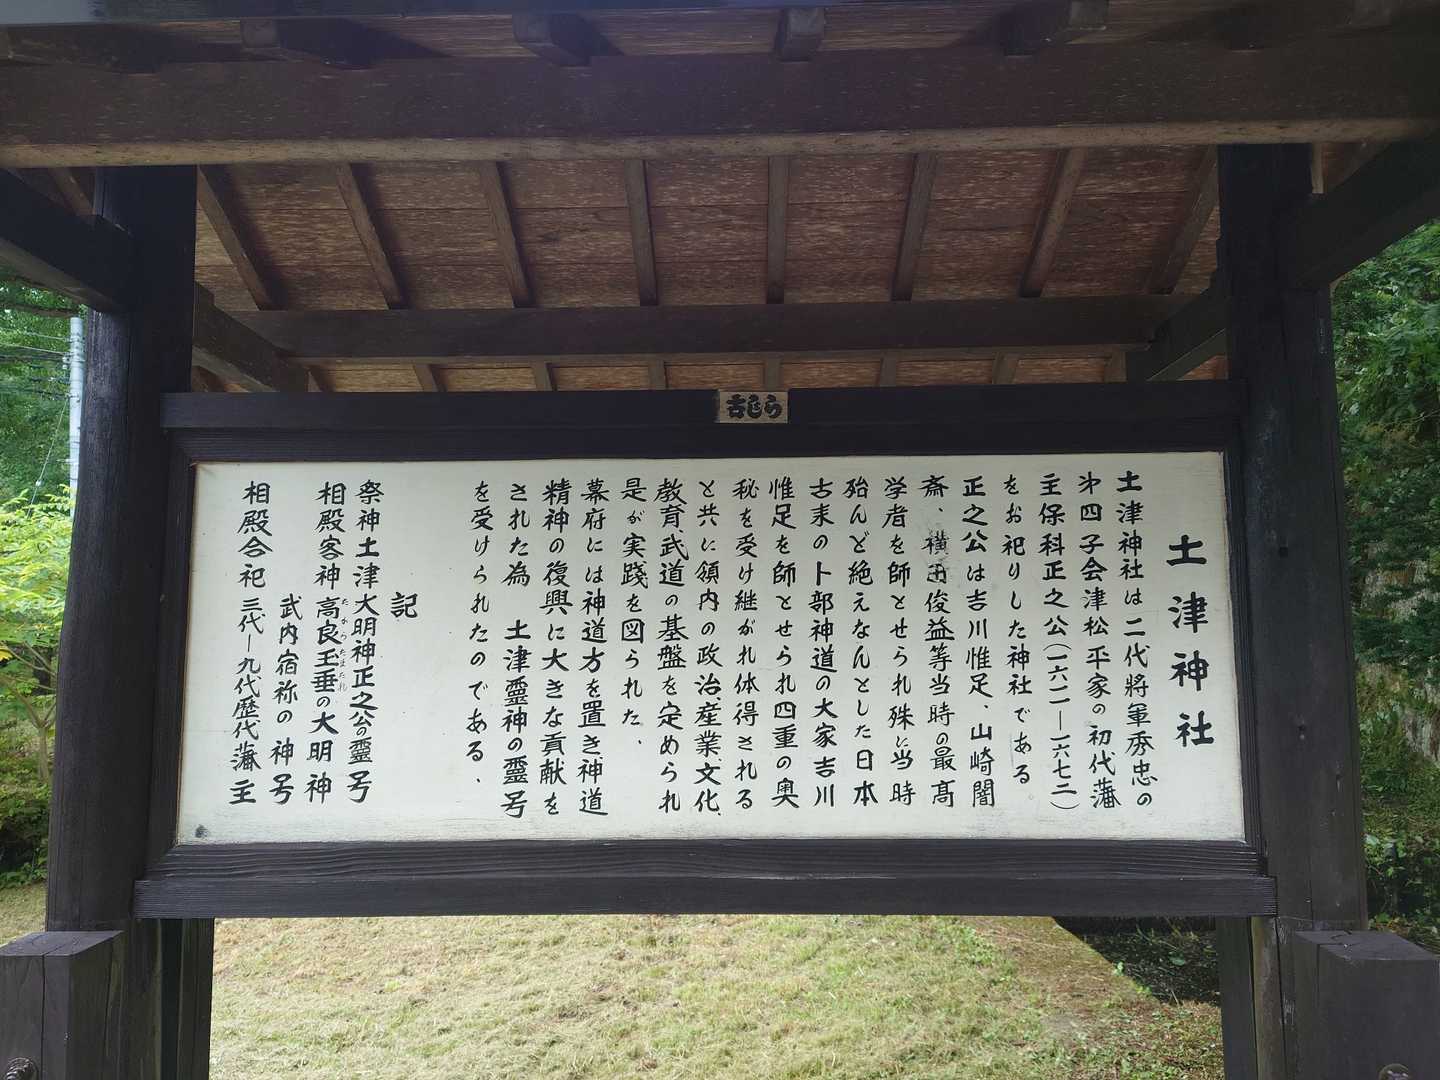 古じら
土津神社
土津神社は二代將軍秀忠の
㐧四子会津松平家の初代藩
主保科正之公(一六一一―一六七二)
をお祀りした神社である。
正之公は吉川惟足、山崎闇
斎、横田俊益等当時の最髙
学者を師とせられ殊に当時
殆んど絶えなんとした日本
古来の卜部神道の大家吉川
惟足を師とせられ四重の奥
秘を受け継がれ体得される
と共に領内の政治、産業、文化、
教育、武道の基盤を定められ
是が実践を図られた、
幕府には神道方を置き神道
精神の復興に大きな貢献を
された為 土津靈神の靈号
を受けられたのである、
記
祭神土津大明神正之公の靈号
相殿客神高良玉垂の大明神
たからたまたれ
武内宿祢の神号
相殿合祀 三代―九代歴代藩主